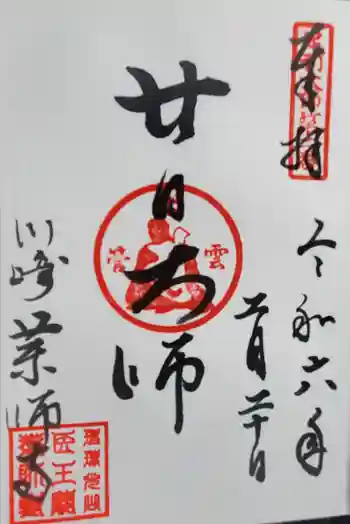 奉拝
令和六年
二月二十日
廿日大師
雲
川崎薬師寺